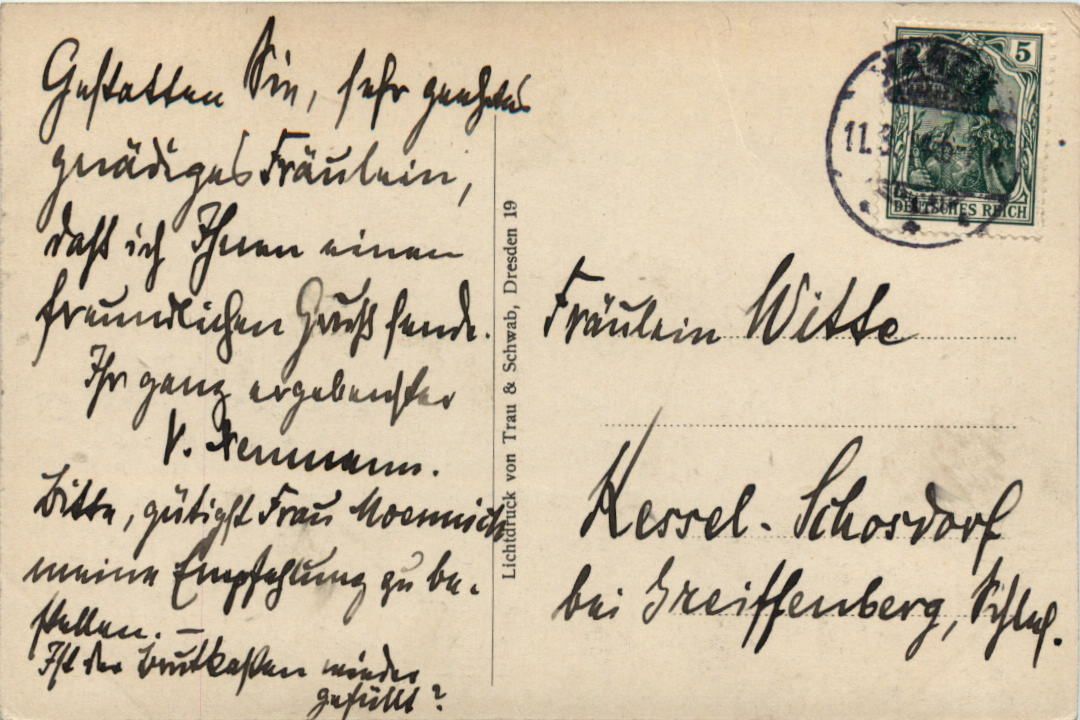 Gestatten Sie, sehr geehrtes
gnädiges Fräulein,
daß ich Ihnen einen
freundlichen Gruß sende.
Ihr ganz ergebenster
V.
Bitte, gütigst Frau
meine Empfehlung zu be-
stellen. –
Ist der Brutkasten wieder
gefüllt?
Lichtdruck von Trau & Schwab, Dresden 19
5
DEUTSCHES REICH
11.3
Fräulein Witte
Kessel-Schosdorf
bei Greiffenberg, Schles.